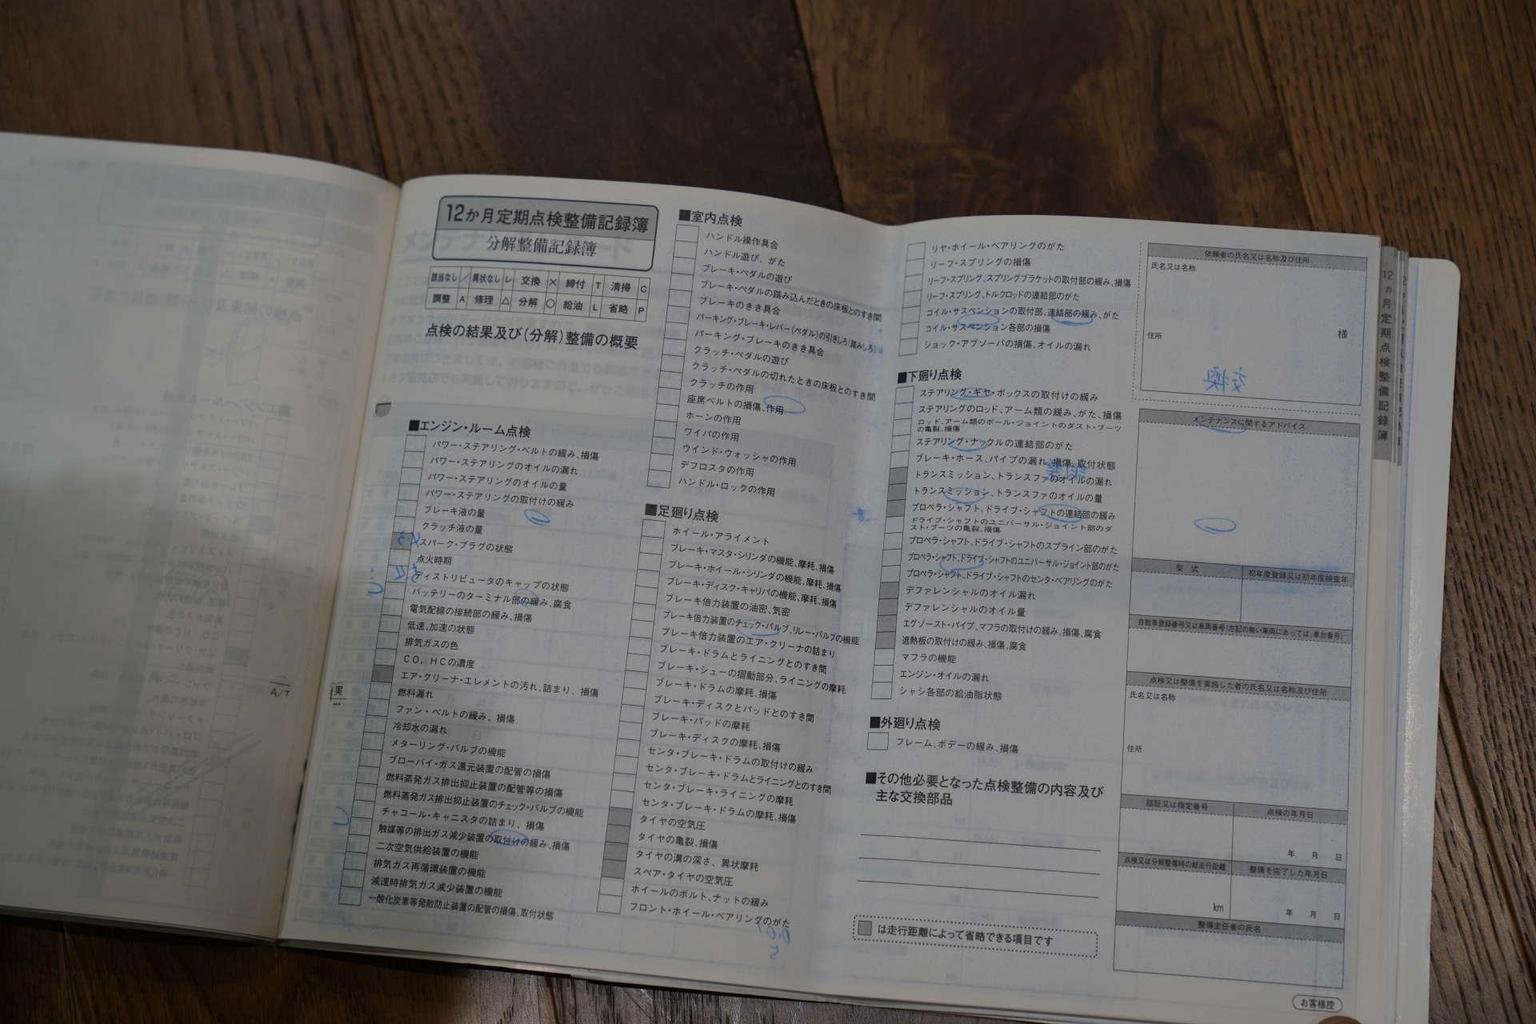 12か月定期点検整備記録簿
分解整備記録簿
該当なし / 異状なし レ 交換 × 締付 T 清掃 C
調整 A 修理 △ 分解 ○ 給油 L 省略 P
点検の結果及び(分解)整備の概要
■エンジン・ルーム点検
パワー・ステアリング・ベルトの緩み、損傷
パワー・ステアリングのオイルの漏れ
パワー・ステアリングのオイルの量
パワー・ステアリングの取付けの緩み
ブレーキ液の量
クラッチ液の量
スパーク・プラグの状態
点火時期
ディストリビュータのキャップの状態
バッテリーのターミナル部の緩み、腐食
電気配線の接続部の緩み、損傷
低速、加速の状態
排気ガスの色
CO，HCの濃度
エア・クリーナ・エレメントの汚れ、詰まり、損傷
燃料漏れ
ファン・ベルトの緩み、損傷
冷却水の漏れ
メターリング・バルブの機能
ブローバイ・ガス還元装置の配管の損傷
燃料蒸発ガス排出抑止装置の配管等の損傷
燃料蒸発ガス排出抑止装置のチェック・バルブの機能
チャコール・キャニスタの詰まり、損傷
触媒等の排出ガス減少装置の取付けの緩み、損傷
二次空気供給装置の機能
排気ガス再循環装置の機能
減速時排気ガス減少装置の機能
一酸化炭素等発散防止装置の配管の損傷、取付状態
■室内点検
ハンドル操作具合
ハンドル遊び、がた
ブレーキ・ペダルの遊び
ブレーキ・ペダルの踏み込んだときの床板とのすき間
ブレーキのきき具合
パーキング・ブレーキ・レバー(ペダル)の引きしろ(踏みしろ)
パーキング・ブレーキのきき具合
クラッチ・ペダルの遊び
クラッチ・ペダルの切れたときの床板とのすき間
クラッチの作用
座席ベルトの損傷、作用
ホーンの作用
ワイパの作用
ウインド・ウォッシャの作用
デフロスタの作用
ハンドル・ロックの作用
■足廻り点検
ホイール・アライメント
ブレーキ・マスタ・シリンダの機能、摩耗、損傷
ブレーキ・ホイール・シリンダの機能、摩耗、損傷
ブレーキ・ディスク・キャリパの機能、摩耗、損傷
ブレーキ倍力装置の油密、気密
ブレーキ倍力装置のチェック・バルブ、リレー・バルブの機能
ブレーキ倍力装置のエア・クリーナの詰まり
ブレーキ・ドラムとライニングとのすき間
ブレーキ・シューの摺動部分、ライニングの摩耗
ブレーキ・ドラムの摩耗、損傷
ブレーキ・ディスクとパッドとのすき間
ブレーキ・パッドの摩耗
ブレーキ・ディスクの摩耗、損傷
センタ・ブレーキ・ドラムの取付けの緩み
センタ・ブレーキ・ドラムとライニングとのすき間
センタ・ブレーキ・ライニングの摩耗
センタ・ブレーキ・ドラムの摩耗、損傷
タイヤの空気圧
タイヤの亀裂、損傷
タイヤの溝の深さ、異状摩耗
スペア・タイヤの空気圧
ホイールのボルト、ナットの緩み
フロント・ホイール・ベアリングのがた
リヤ・ホイール・ベアリングのがた
リーフ・スプリングの損傷
リーフ・スプリング、スプリングブラケットの取付部の緩み、損傷
リーフ・スプリング、トルクロッドの連結部のがた
コイル・サスペンションの取付部、連結部の緩み、がた
コイル・サスペンション各部の損傷
ショック・アブソーバの損傷、オイルの漏れ
■下廻り点検
ステアリング・ギヤ・ボックスの取付けの緩み
ステアリングのロッド、アーム類の緩み、がた、損傷
ロッド、アーム類のボール・ジョイントのダスト・ブーツの亀裂、損傷
ステアリング・ナックルの連結部のがた
ブレーキ・ホース、パイプの漏れ、損傷、取付状態
トランスミッション、トランスファのオイルの漏れ
トランスミッション、トランスファのオイルの量
プロペラ・シャフト、ドライブ・シャフトの連結部の緩み
ドライブ・シャフトのユニバーサル・ジョイント部のダスト・ブーツの亀裂、損傷
プロペラ・シャフト、ドライブ・シャフトのスプライン部のがた
プロペラ・シャフト、ドライブ・シャフトのユニバーサル・ジョイント部のがた
プロペラ・シャフト、ドライブ・シャフトのセンタ・ベアリングのがた
デファレンシャルのオイル漏れ
デファレンシャルのオイル量
エグゾースト・パイプ、マフラの取付けの緩み、損傷、腐食
遮熱板の取付けの緩み、損傷、腐食
マフラの機能
エンジン・オイルの漏れ
シャシ各部の給油脂状態
■外廻り点検
フレーム、ボデーの緩み、損傷
■その他必要となった点検整備の内容及び
主な交換部品
は走行距離によって省略できる項目です
依頼者の氏名又は名称及び住所
氏名又は名称
住所
様
メンテナンスに関するアドバイス
型 式 初年度登録又は初年度検査年
自動車登録番号又は車両番号(左記の無い車両にあっては、車台番号)
点検又は整備を実施した者の氏名又は名称及び住所
氏名又は名称
住所
認証又は指定番号 点検の年月日
年 月 日
点検又は分解整備時の総走行距離 整備を完了した年月日
km 年 月 日
整備主任者の氏名
お客様控
12か月定期点検整備記録簿